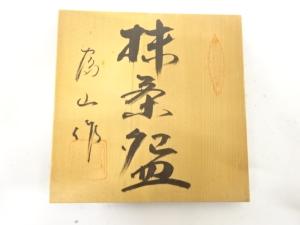 抹茶盌
山作